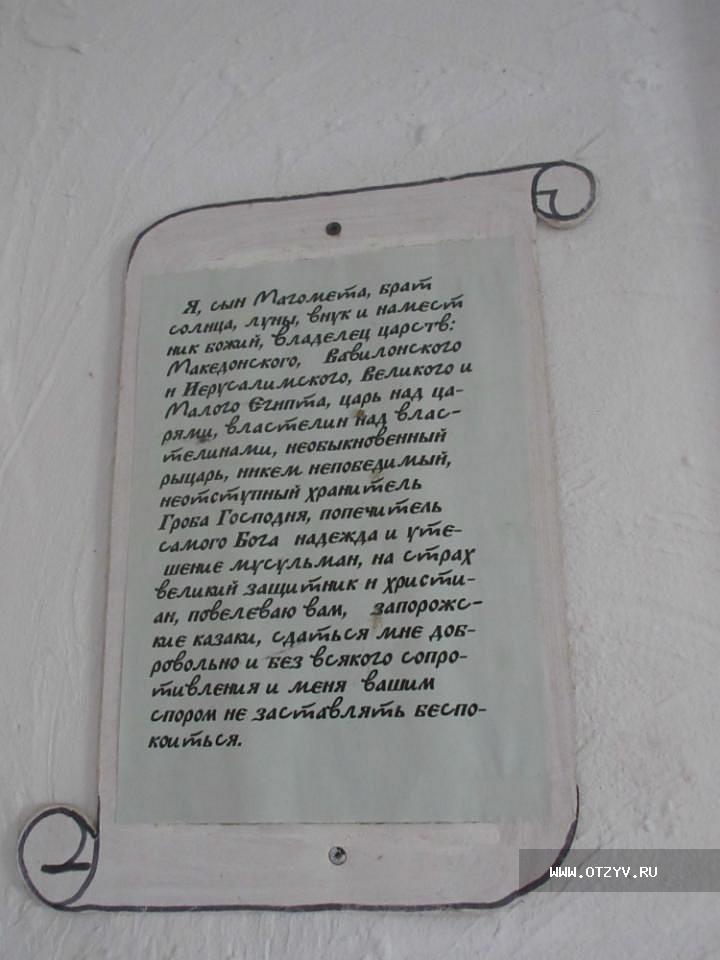 Я, сын Магомета, брат
солнца, луны, внук и намест
ник божий, владелец царств:
Македонского, Вавилонского
и Иерусалимского, Великого и
Малого Египта, царь над ца-
рями, властелин над влас-
телинами, необыкновенный
рыцарь, никем непобедимый,
неотступный хранитель
Гроба Господня, попечитель
самого Бога надежда и уте-
шение мусульман, на страх
великий защитник и христи-
ан, повелеваю вам, запорожс-
кие казаки, сдаться мне доб-
ровольно и без всякого сопро-
тивления и меня вашим
спором не заставлять беспо-
коиться.
WWW.OTZYV.RU